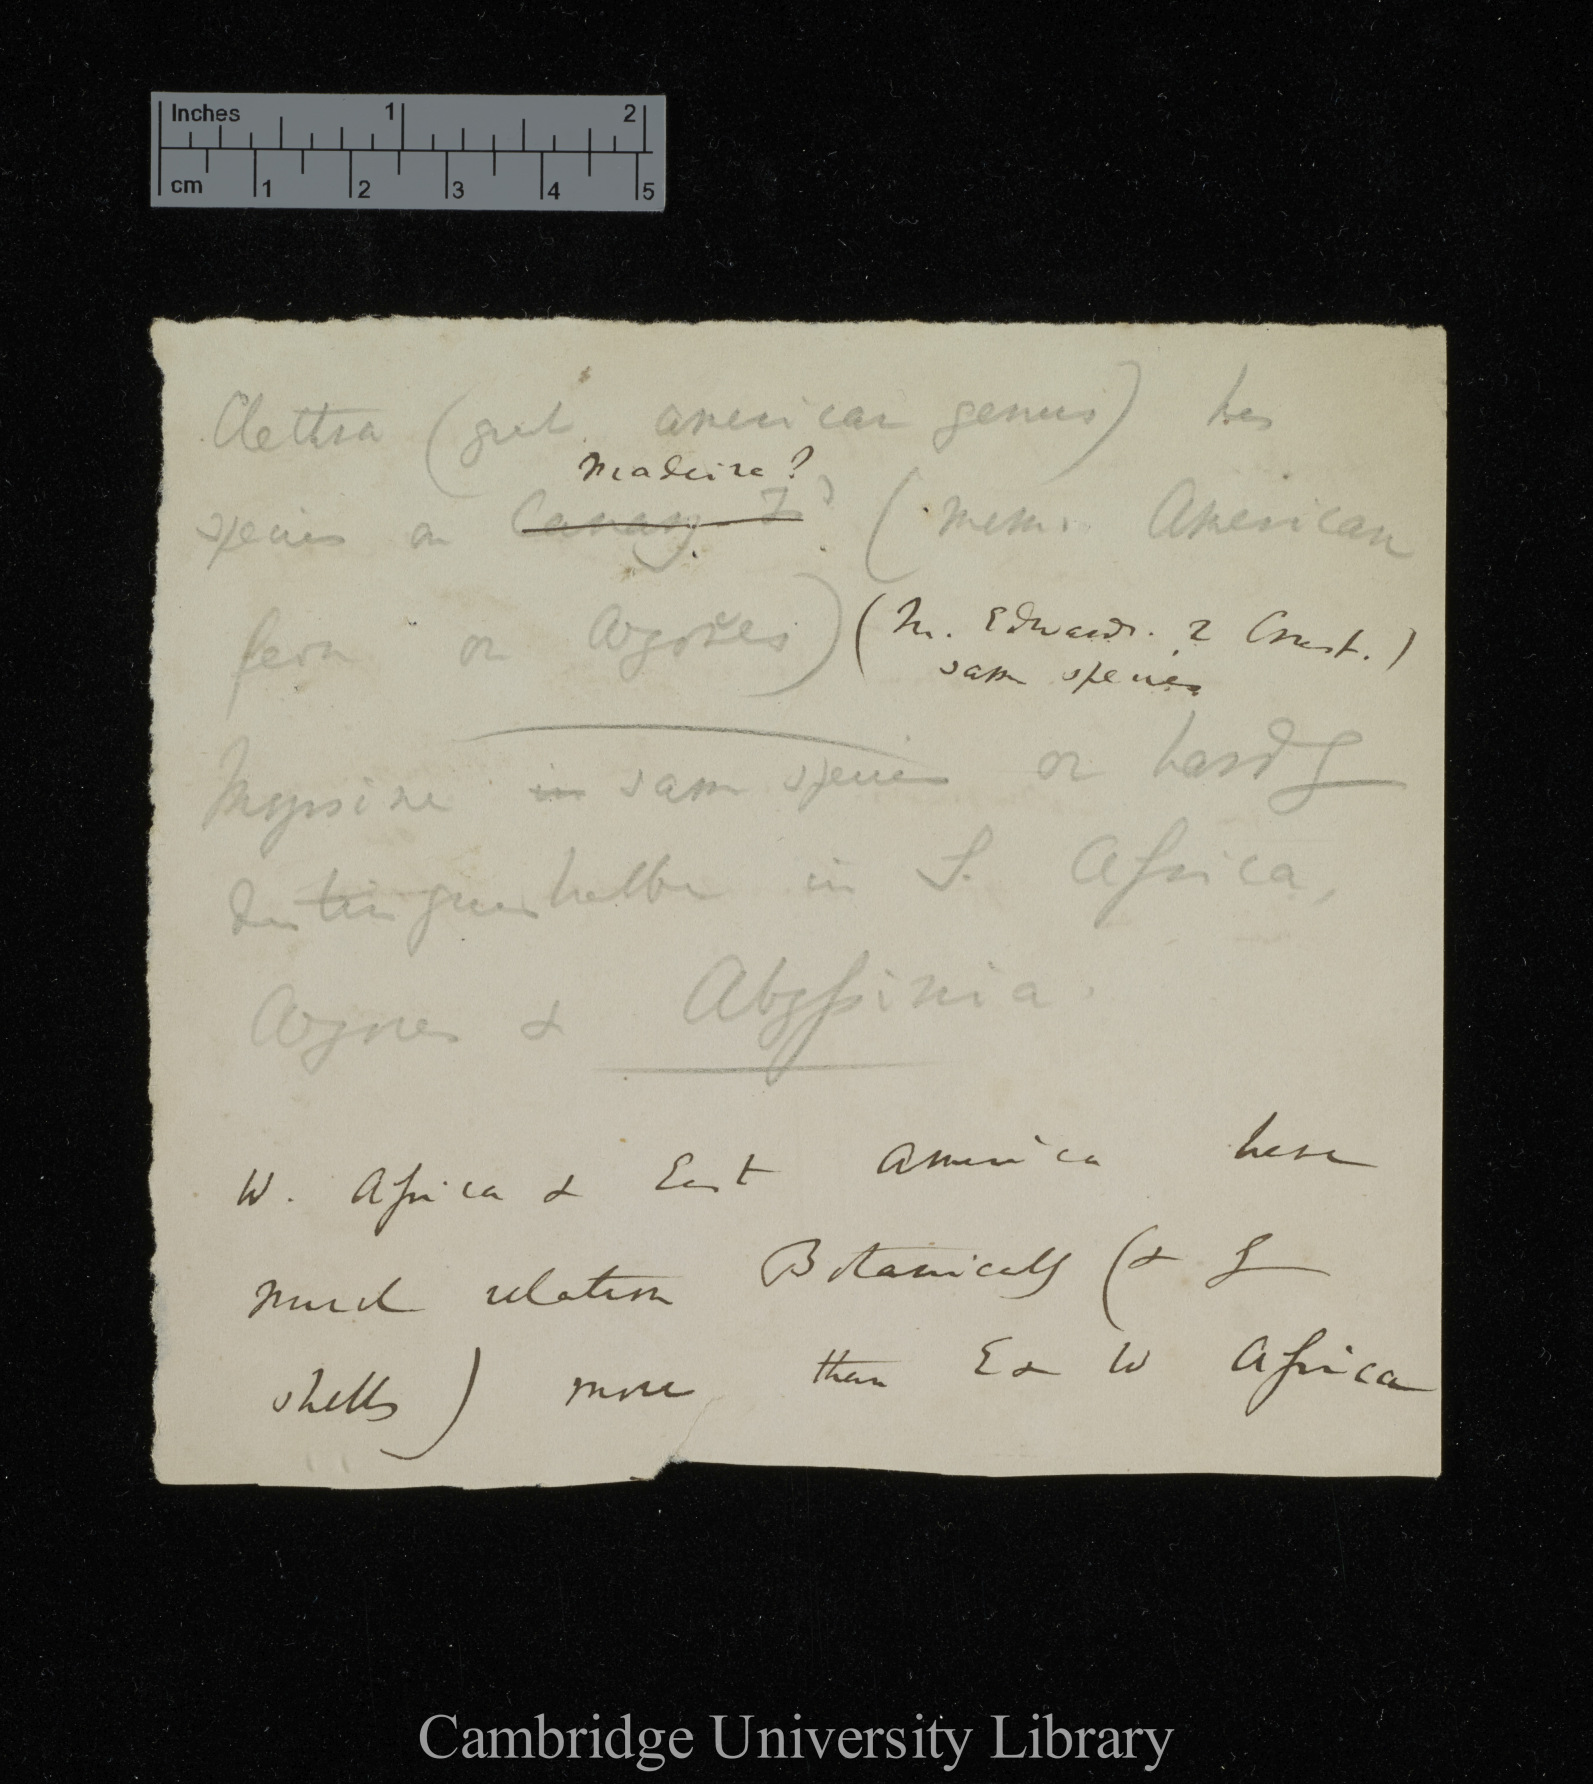 Inches 1 2
cm 1 2 3 4 5
Clethra (great American genus) has
Madeira?
species on Canary Is (mem. American
fern on Azores) (M. Edwards. 2 Crust.)
same species
Myrsine in same species or hardly
distinguishable in S. Africa,
Azores & Abyssinia.
W. Africa & East America have
much relation Botanically (&
shells) more than E & W Africa
Cambridge University Library